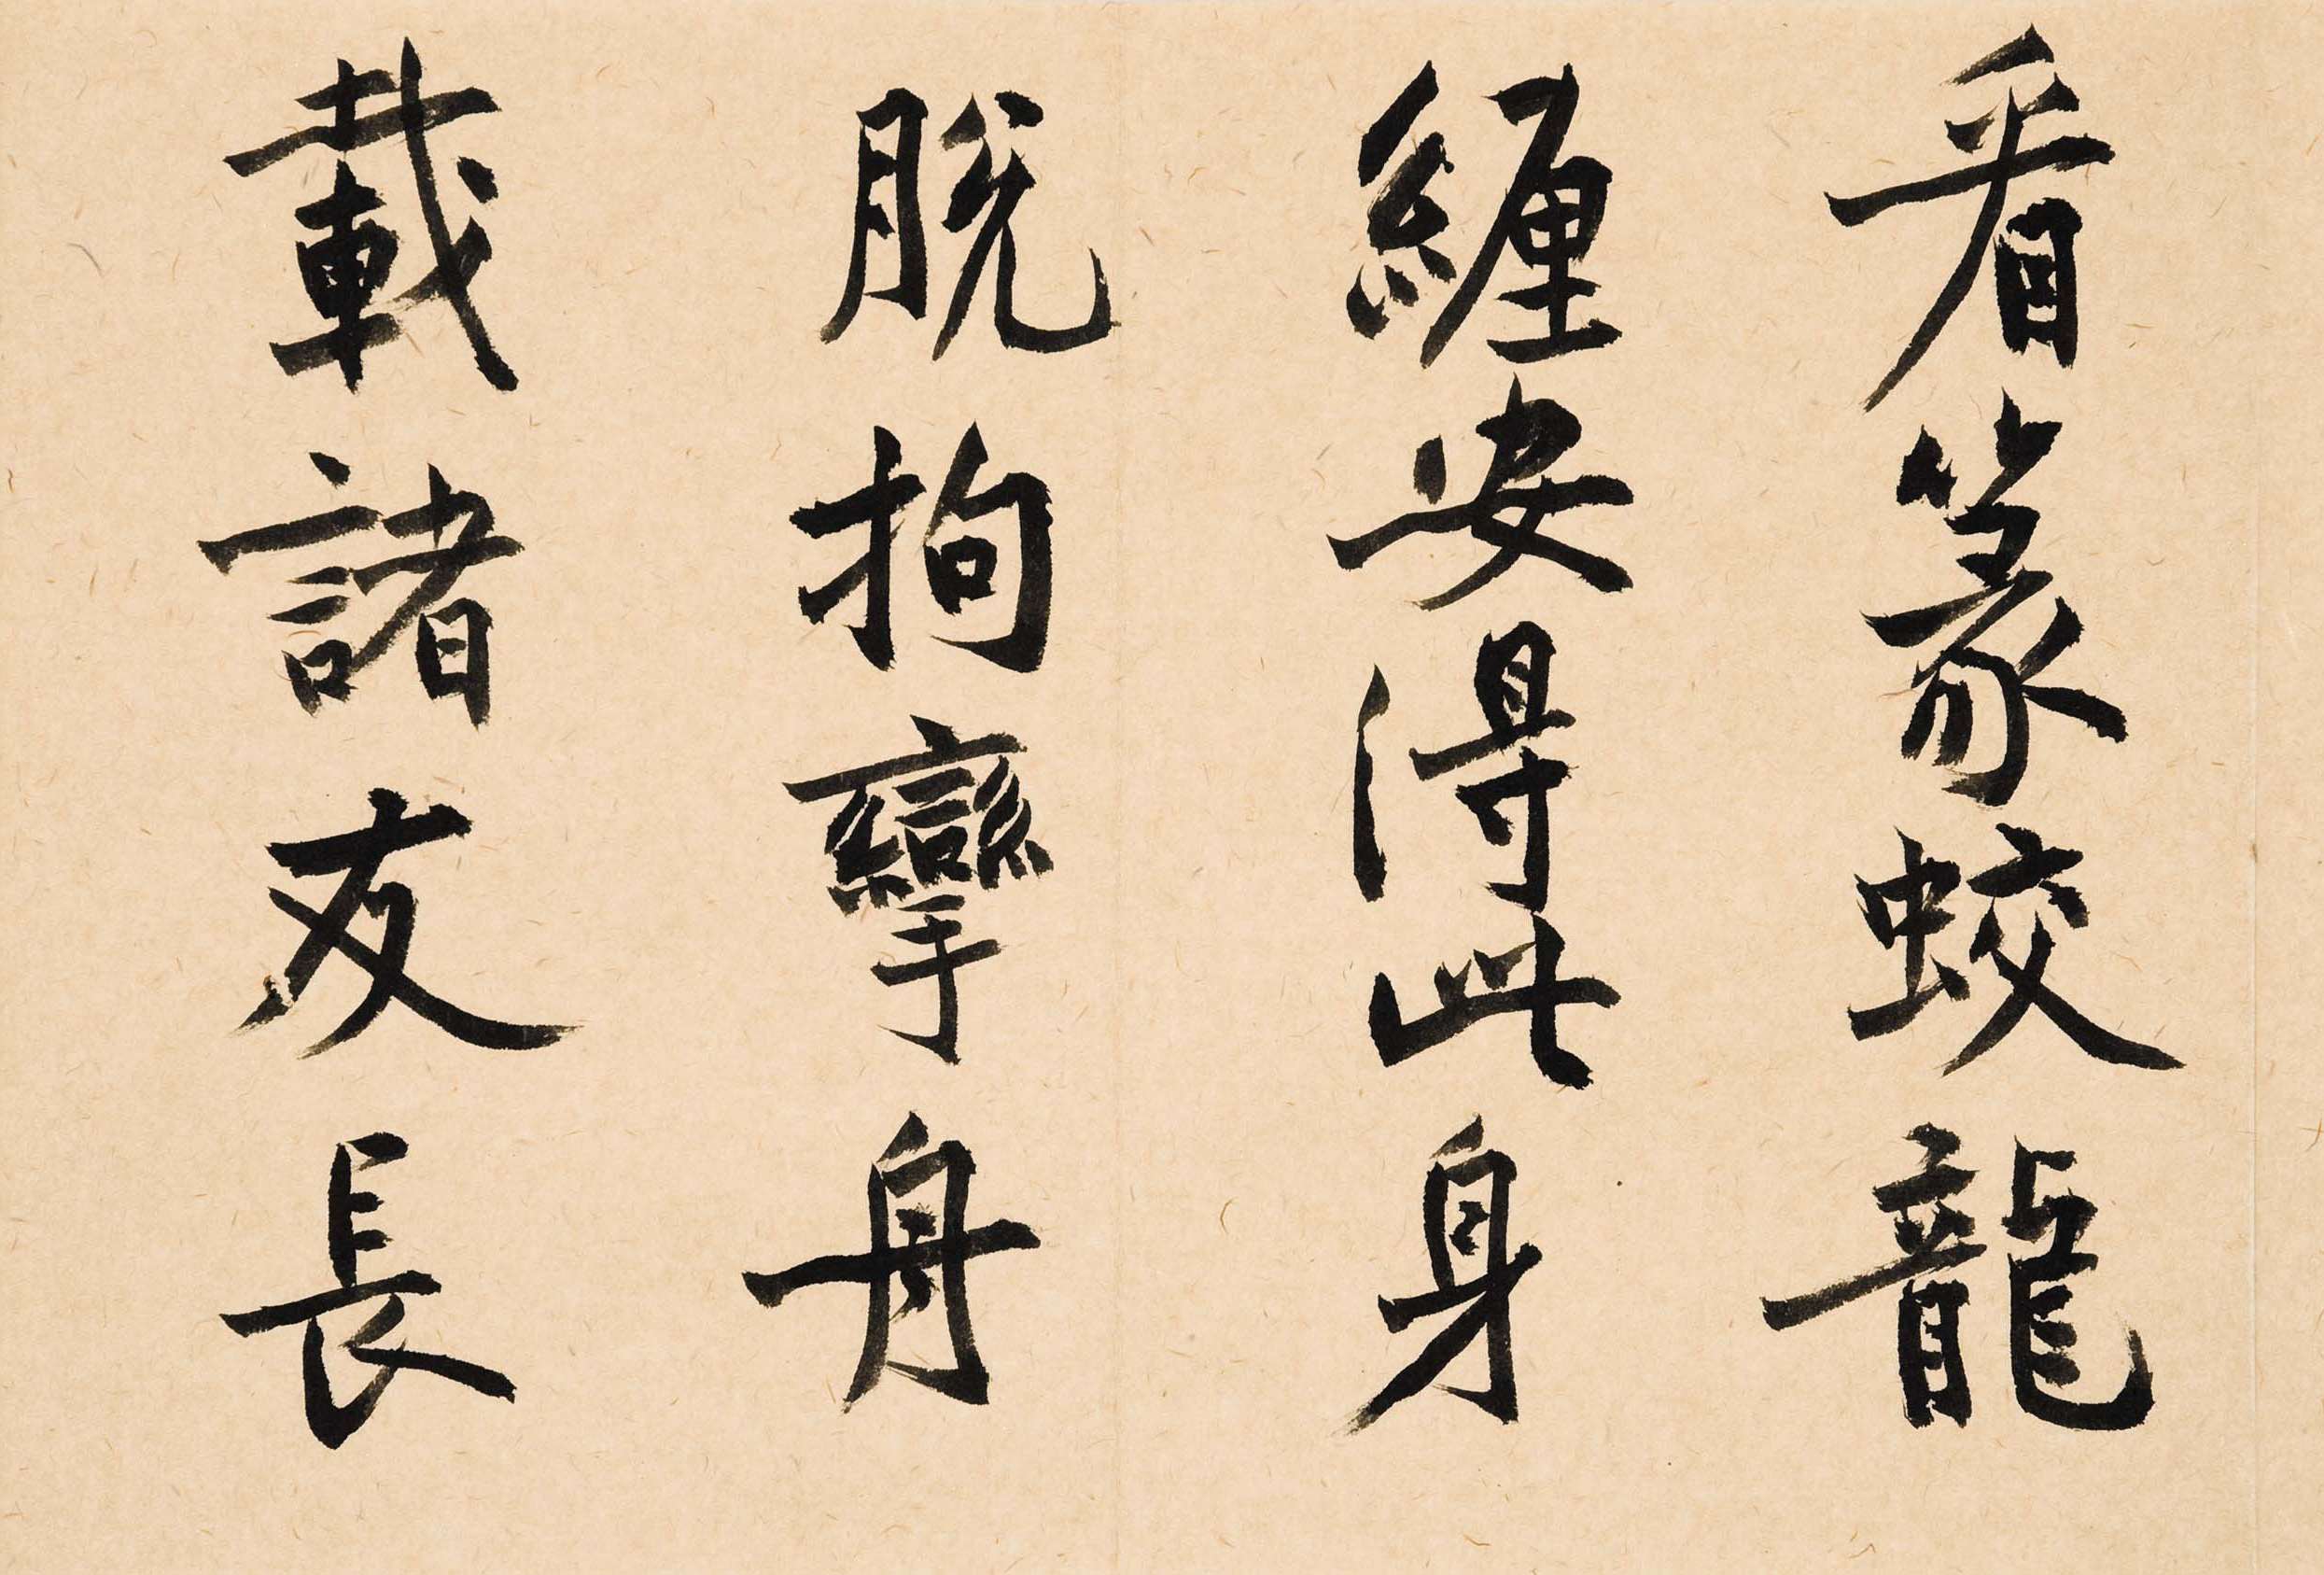 看篆蛟龍
纏安得此身
脫拘攣舟
載諸友長